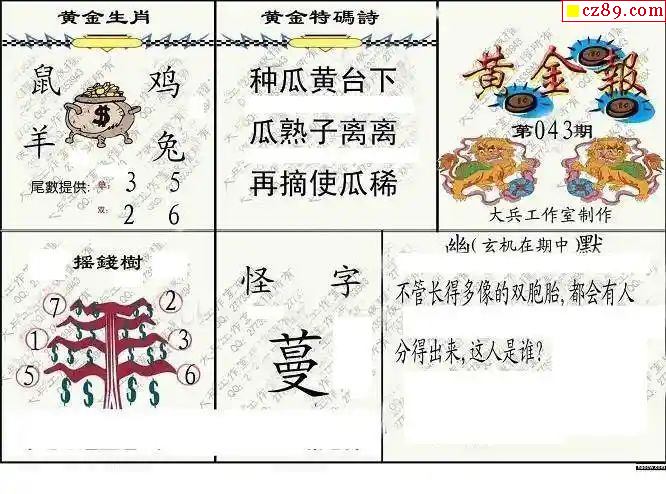 cz89.com
黄金生肖
鼠 鸡
$
羊 兔
尾數提供: 单: 3 5
双: 2 6
黄金特碼詩
种瓜黄台下
瓜熟子离离
再摘使瓜稀
黄金報
第043期
大兵工作室制作
摇錢樹
7 2
1 3
5 6
$ $ $ $ $ $ $ $
怪 字
蔓
幽(玄机在期中)默
不管长得多像的双胞胎,都会有人
分得出来,这人是谁?